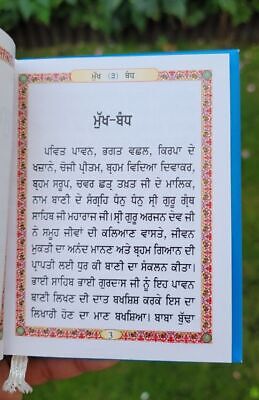 ਮੁੱਖ (੩) ਬੰਧ
ਮੁੱਖ-ਬੰਧ
ਪਵਿਤ ਪਾਵਨ, ਭਗਤ ਵਛਲ, ਕਿਰਪਾ ਦੇ
ਖਜ਼ਾਨੇ, ਚੋਜੀ ਪ੍ਰੀਤਮ, ਬ੍ਰਹਮ ਵਿਦਿਆ ਦਿਵਾਕਰ,
ਬ੍ਰਹਮ ਸਰੂਪ, ਚਵਰ ਛਤ੍ਰ ਤਖ਼ਤ ਜੀ ਦੇ ਮਾਲਿਕ,
ਨਾਮ ਬਾਣੀ ਦੇ ਸੰਗ੍ਰਹਿ ਧੰਨੁ ਧੰਨੁ ਸ੍ਰੀ ਗੁਰੂ ਗ੍ਰੰਥ
ਸਾਹਿਬ ਜੀ ਮਹਾਰਾਜ ਜੀ। ਸ੍ਰੀ ਗੁਰੂ ਅਰਜਨ ਦੇਵ ਜੀ
ਨੇ ਸਮੂਹ ਜੀਵਾਂ ਦੀ ਕਲਿਆਣ ਵਾਸਤੇ, ਜੀਵਨ
ਮੁਕਤੀ ਦਾ ਅਨੰਦ ਮਾਨਣ ਅਤੇ ਬ੍ਰਹਮ ਗਿਆਨ ਦੀ
ਪ੍ਰਾਪਤੀ ਲਈ ਧੁਰ ਕੀ ਬਾਣੀ ਦਾ ਸੰਕਲਨ ਕੀਤਾ।
ਭਾਈ ਸਾਹਿਬ ਭਾਈ ਗੁਰਦਾਸ ਜੀ ਨੂੰ ਇਹ ਪਾਵਨ
ਬਾਣੀ ਲਿਖਣ ਦੀ ਦਾਤ ਬਖਸ਼ਿਸ਼ ਕਰਕੇ ਇਸ ਦਾ
ਲਿਖਾਰੀ ਹੋਣ ਦਾ ਮਾਣ ਬਖਸ਼ਿਆ। ਬਾਬਾ ਬੁੱਢਾ
3